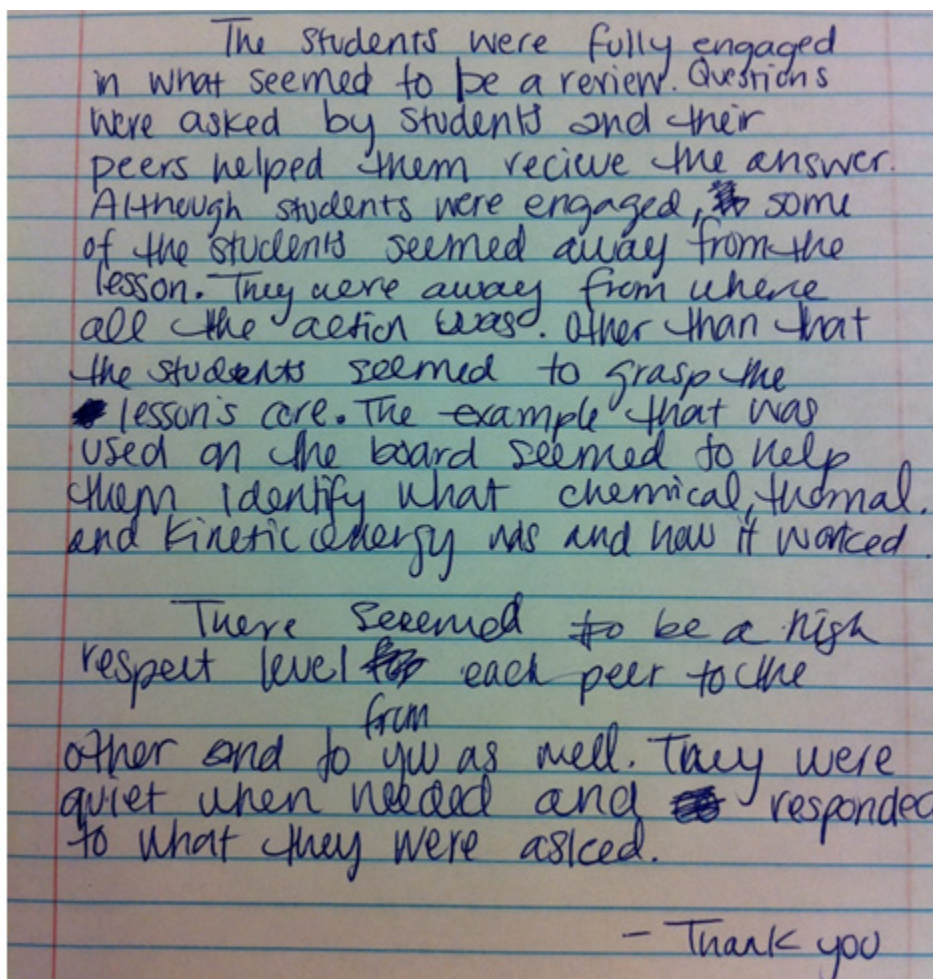 The students were fully engaged
in what seemed to be a review. Questions
were asked by students and their
peers helped them recieve the answer.
Although students were engaged, some
of the students seemed away from the
lesson. They were away from where
all the action was. Other than that
the students seemed to grasp the
lesson's core. The example that was
used on the board seemed to help
them identify what chemical, thermal.
and kinetic energy was and how it worked.
There seemed to be a high
respect level each peer to the
from
other and to you as well. They were
quiet when needed and responded
to what they were asked.
- Thank you